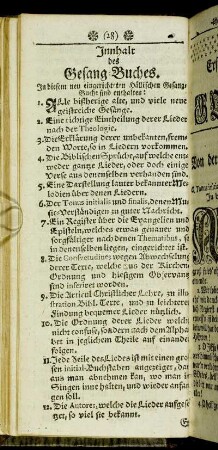 (28)
Innhalt
des
Gesang-Buches.
In diesem neu eingerichteten Hällischen Gesang-
Buche sind enthalten:
1. Alle bißherige alte, und viele neue
geistreiche Gesänge.
2. Eine richtige Eintheilung derer Lieder
nach der Theologie.
3. Die Erklärung derer unbekannten, frem-
den Worte, so in Liedern vorkommen.
4. Die Biblischen Sprüche, auf welche ent-
weder gantze Lieder, oder doch einige
Verse aus denenselben verhanden sind.
5. Eine Darstellung lauter bekannter Me-
lodien über denen Liedern.
6. Der Tonus initialis und finalis, denen Mu-
sic-Verständigen zu guter Nachricht.
7. Ein Register über die Evangelien und
Episteln, welches etwas genauer und
sorgfältiger nach denen Thematibus, so
in denenselben liegen, eingerichtet ist.
8. Die
derer Texte, welche das Jahr der Kirchen-
Ordnung und hiesigen Observanz
sind inseriret worden.
9. Die Articul Christlicher Lehre, in illu-
stration Bibl. Texte, und zu leichterer
Findung bequemer Lieder nützlich.
10. Die Ordnung derer Lieder welche
nicht confuse, sondern nach dem Alpha-
bet in jeglichem Theile auf einander
folget.
11. Jede Zeile des Liedes ist mit einen gros-
sen initial-Buchstaben angezeiget, das
aus man abnehmen kan, wo man im
Singen inne halten, und wieder anfan-
gen soll.
12. Die Autores, welche die Lieder aufgese-
tzet, so viel sie bekannt.